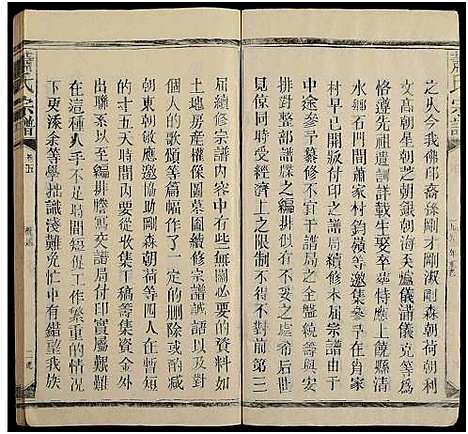 之火今我佛印裔孫剛才剛淑剛森朝荷朝利
文高朝星朝芝朝銀朝海天爐儀滿儀克等爲
恪遵先祖遺訓詳載生娶至葬特應上饒縣清
水鄉石門間蕭家村鈞嶺等邀集參予在肖家
村早已開版付印之譜局續修本屆宗譜由于
中途參予纂修不一故對譜局之全盤續譜與安
排對整部譜之編排很有不妥之處但事實常
見係同受經濟上之限制在看人不對前第三
屆續修宗譜內容中有些無關必要的資料如
土地房産權保圖墓圖續修宗譜誡語以及對
個人的歌頌等篇幅作了一定的删除或酌減
朝東朝敏邀協助剛森朝荷等四人在暫短
的十五天時間內要從收集丁稿籌集資金外
出聯系以至編排謄寫交譜局付印實屬艱難
在這種人手不足時間短促工作繁重的情況
下更溱余等學拙識淺難免忙中有錯望我族
蕭氏宗譜
卷首